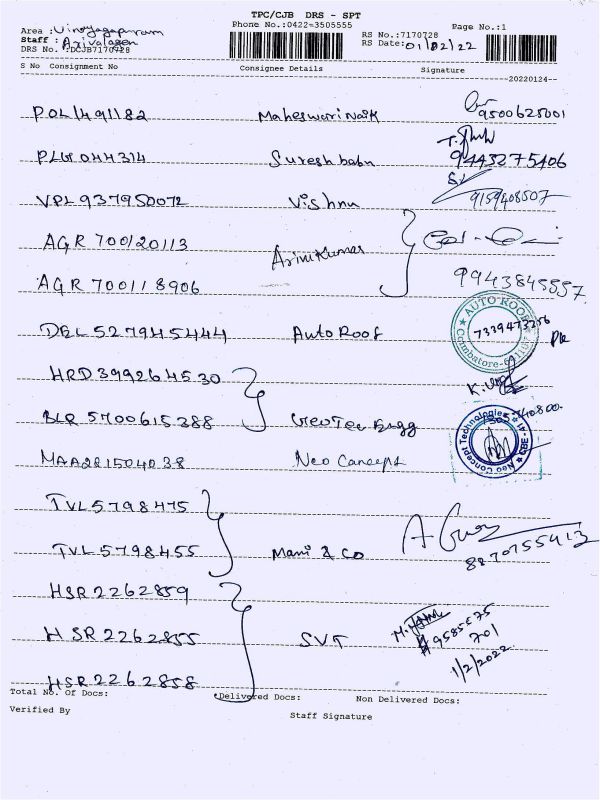 TPC/CJB DRS - SPT
Phone No.:0422-3505555
Page No.:1
Area : Vinayagapuram
Staff : Arivalagan
DRS No. :DCJB7170728
RS No.:7170728
RS Date:01/02/22
S No Consignment No Consignee Details Signature
20220124
POL1491182 Maheswari Naik 9500625001
PLG1044314 Suresh babu 9443275406
VPL937950072 Vishnu 9159408507
AGR 700120113
Arun Kumar
AGR 700118906 9943845557
DEL527945444 Auto Roof
AUTO ROOF
7339473256
Coimbatore
HRD399264530
K.
BLR 5700615388 GeoTec Engg
MAA281504038 Neo Concept
Neo Concept Technologies
CBE
TVL5798475
TVL5798455 Mani & Co 8870755413
HSR2262859
HSR2262855 SVT 9585675
701
1/2/2022
HSR2262858
Total No. Of Docs: Delivered Docs: Non Delivered Docs:
Verified By
Staff Signature